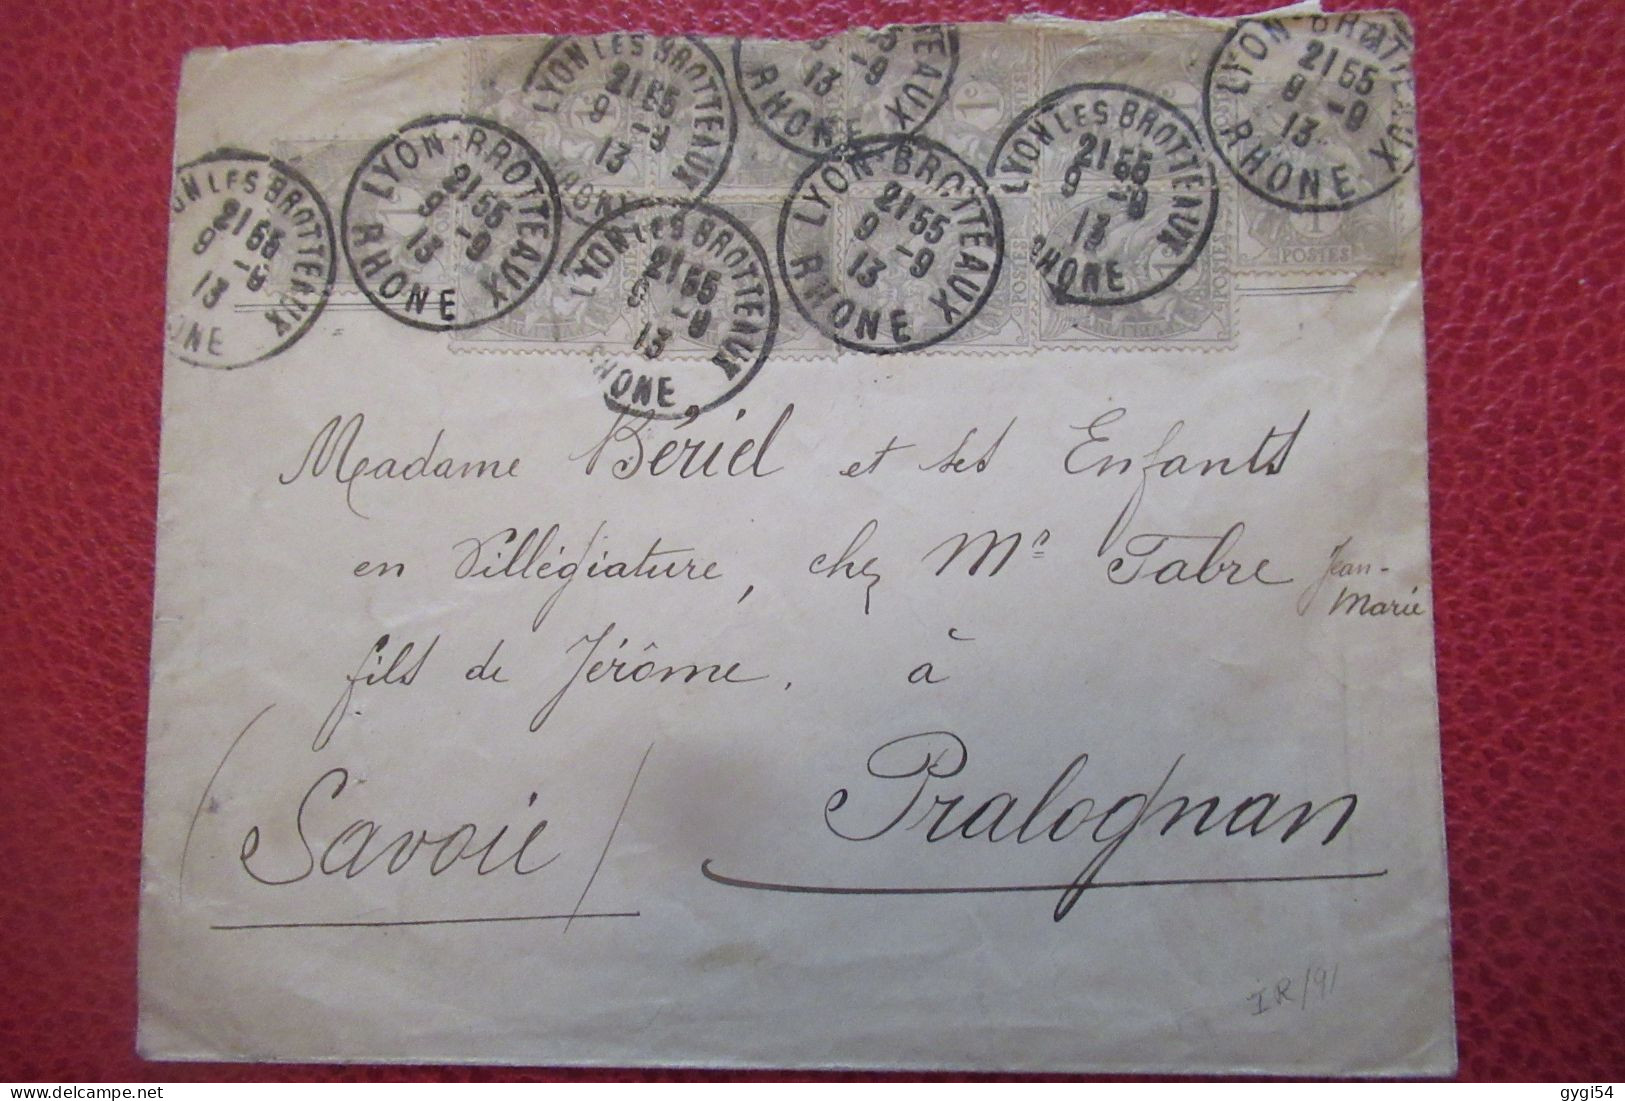 LYON LES BROTTEAUX
21 55
9 -9
13
RHONE
LYON-BROTTEAUX
21 55
9 -9
13
RHONE
LYON LES BROTTEAUX
21 55
9 -9
13
RHONE
13 -9
RHONE
LYON-BROTTEAUX
21 55
9 -9
13
RHONE
LYON LES BROTTEAUX
21 55
9 -9
13
RHONE
LYON-BROTTEAUX
21 55
9 -9
13
RHONE
LYON LES BROTTEAUX
21 55
9 -9
13
RHONE
POSTES
1c
Madame Bériel et ses Enfants
en Villégiature, chez Mr Fabre Jean-
Marie
fils de Jérôme. à
(Savoie) Pralognan
IR/91
gygi54